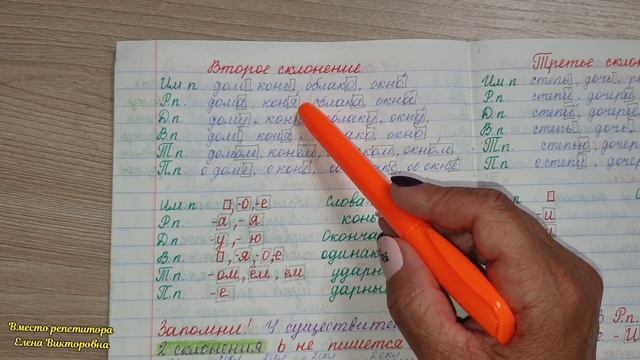 Второе склонение
Им.п дом, конь, облако, окно
Р.п. дома, коня, облака, окна
Д.п. дому, облаку, окну,
В.п дом, коня, окно
Т.п домом, конём, окном,
П.п о доме, о коне, об окне
Им.п. -о, -е
Р.п. -а, -я
Д.п. -у, -ю
В.п. -я, -о, е
Т.п -ом, ём, ем
П.п. -е
Слова
конь
Оконча
одинак
ударн
дарны
Запомни! У существите
2 склонения ь не пишется
Третье скло
Им.п степь, дочь,
Р.п. степи, дочери
Д.п. степи, дочер
В.п. степь, доч
Т.п.
П.п. о степи, дочер
Им.п
Р.п. -и
Д.п. -и
В.п
Т.п.
П.п.
в Р.п.
Вместо репетитора.
Елена Викторовна